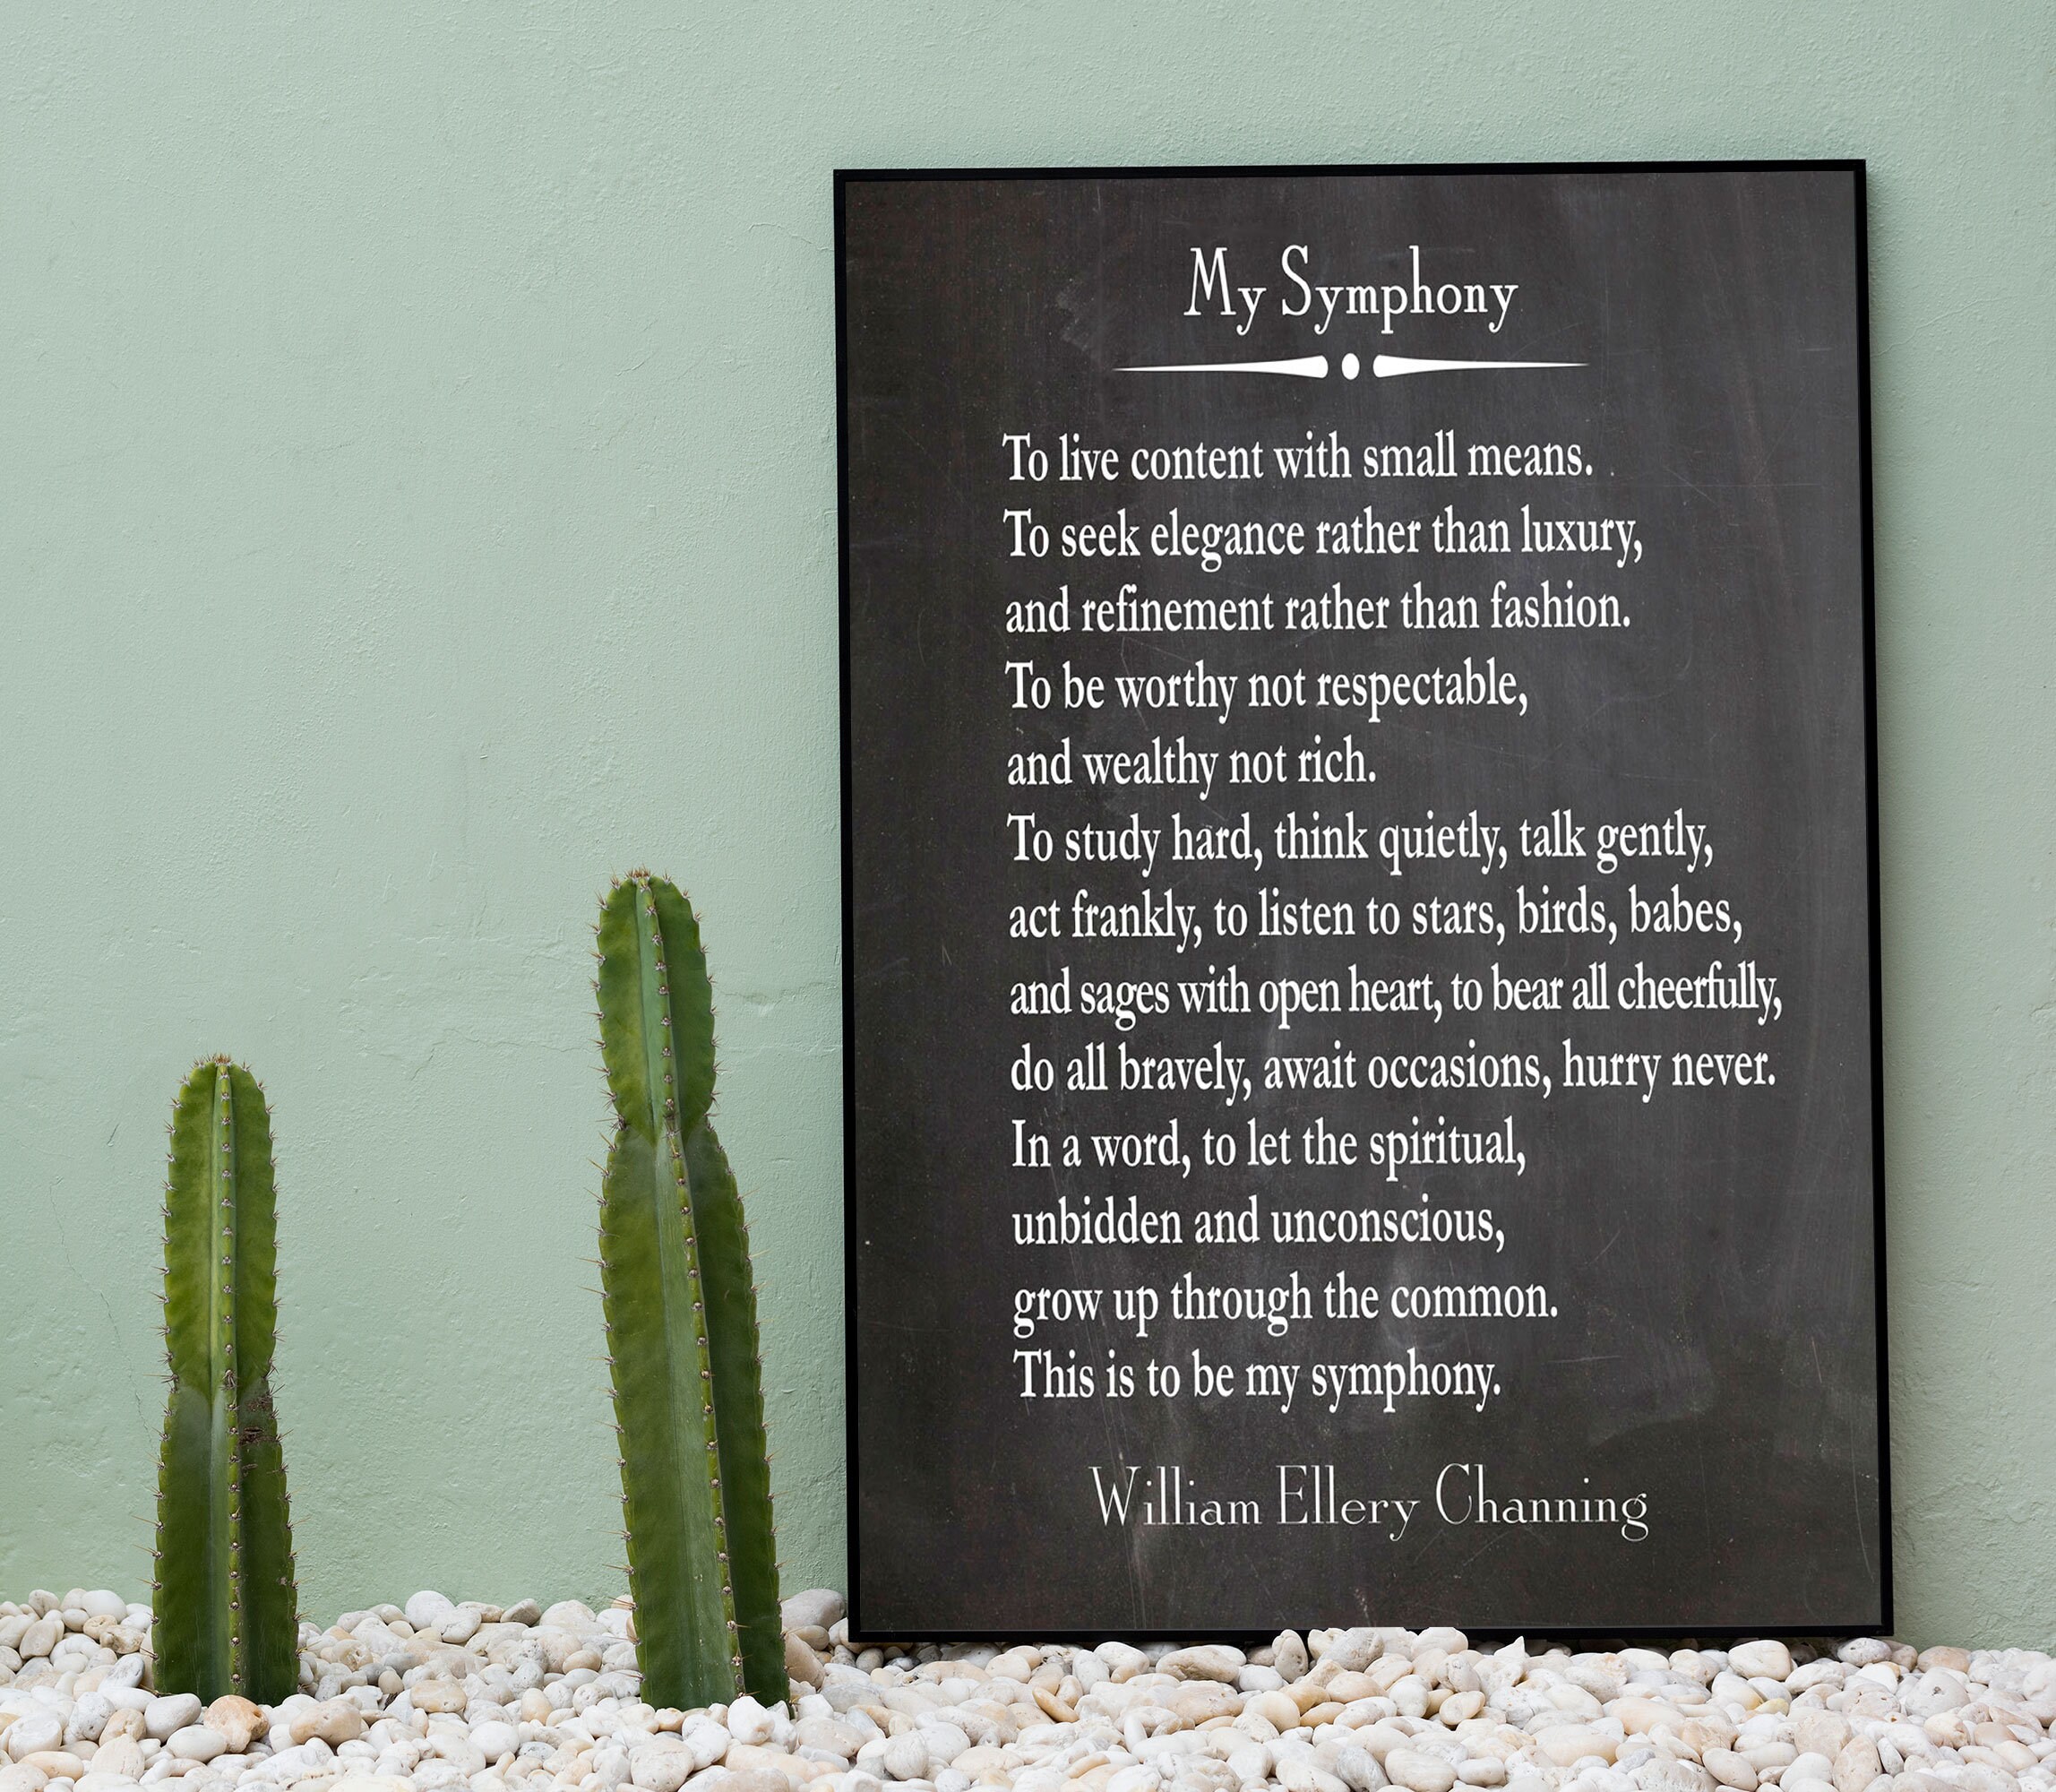 My Symphony
To live content with small means.
To seek elegance rather than luxury,
and refinement rather than fashion.
To be worthy not respectable,
and wealthy not rich.
To study hard, think quietly, talk gently,
act frankly, to listen to stars, birds, babes,
and sages with open heart, to bear all cheerfully,
do all bravely, await occasions, hurry never.
In a word, to let the spiritual,
unbidden and unconscious,
grow up through the common.
This is to be my symphony.
William Ellery Channing